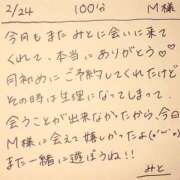 2/24 100分 M様
今月もまたみとに会いに来て
くれて、本当にありがとう♡♡
月初めにご予約してくれたけど
その時は生理になってしまって、
会うことが出来なかったから、今日
M様に会えて嬉しかったよ(*˘︶˘*)
また一緒に遊ぼうね!!
みと